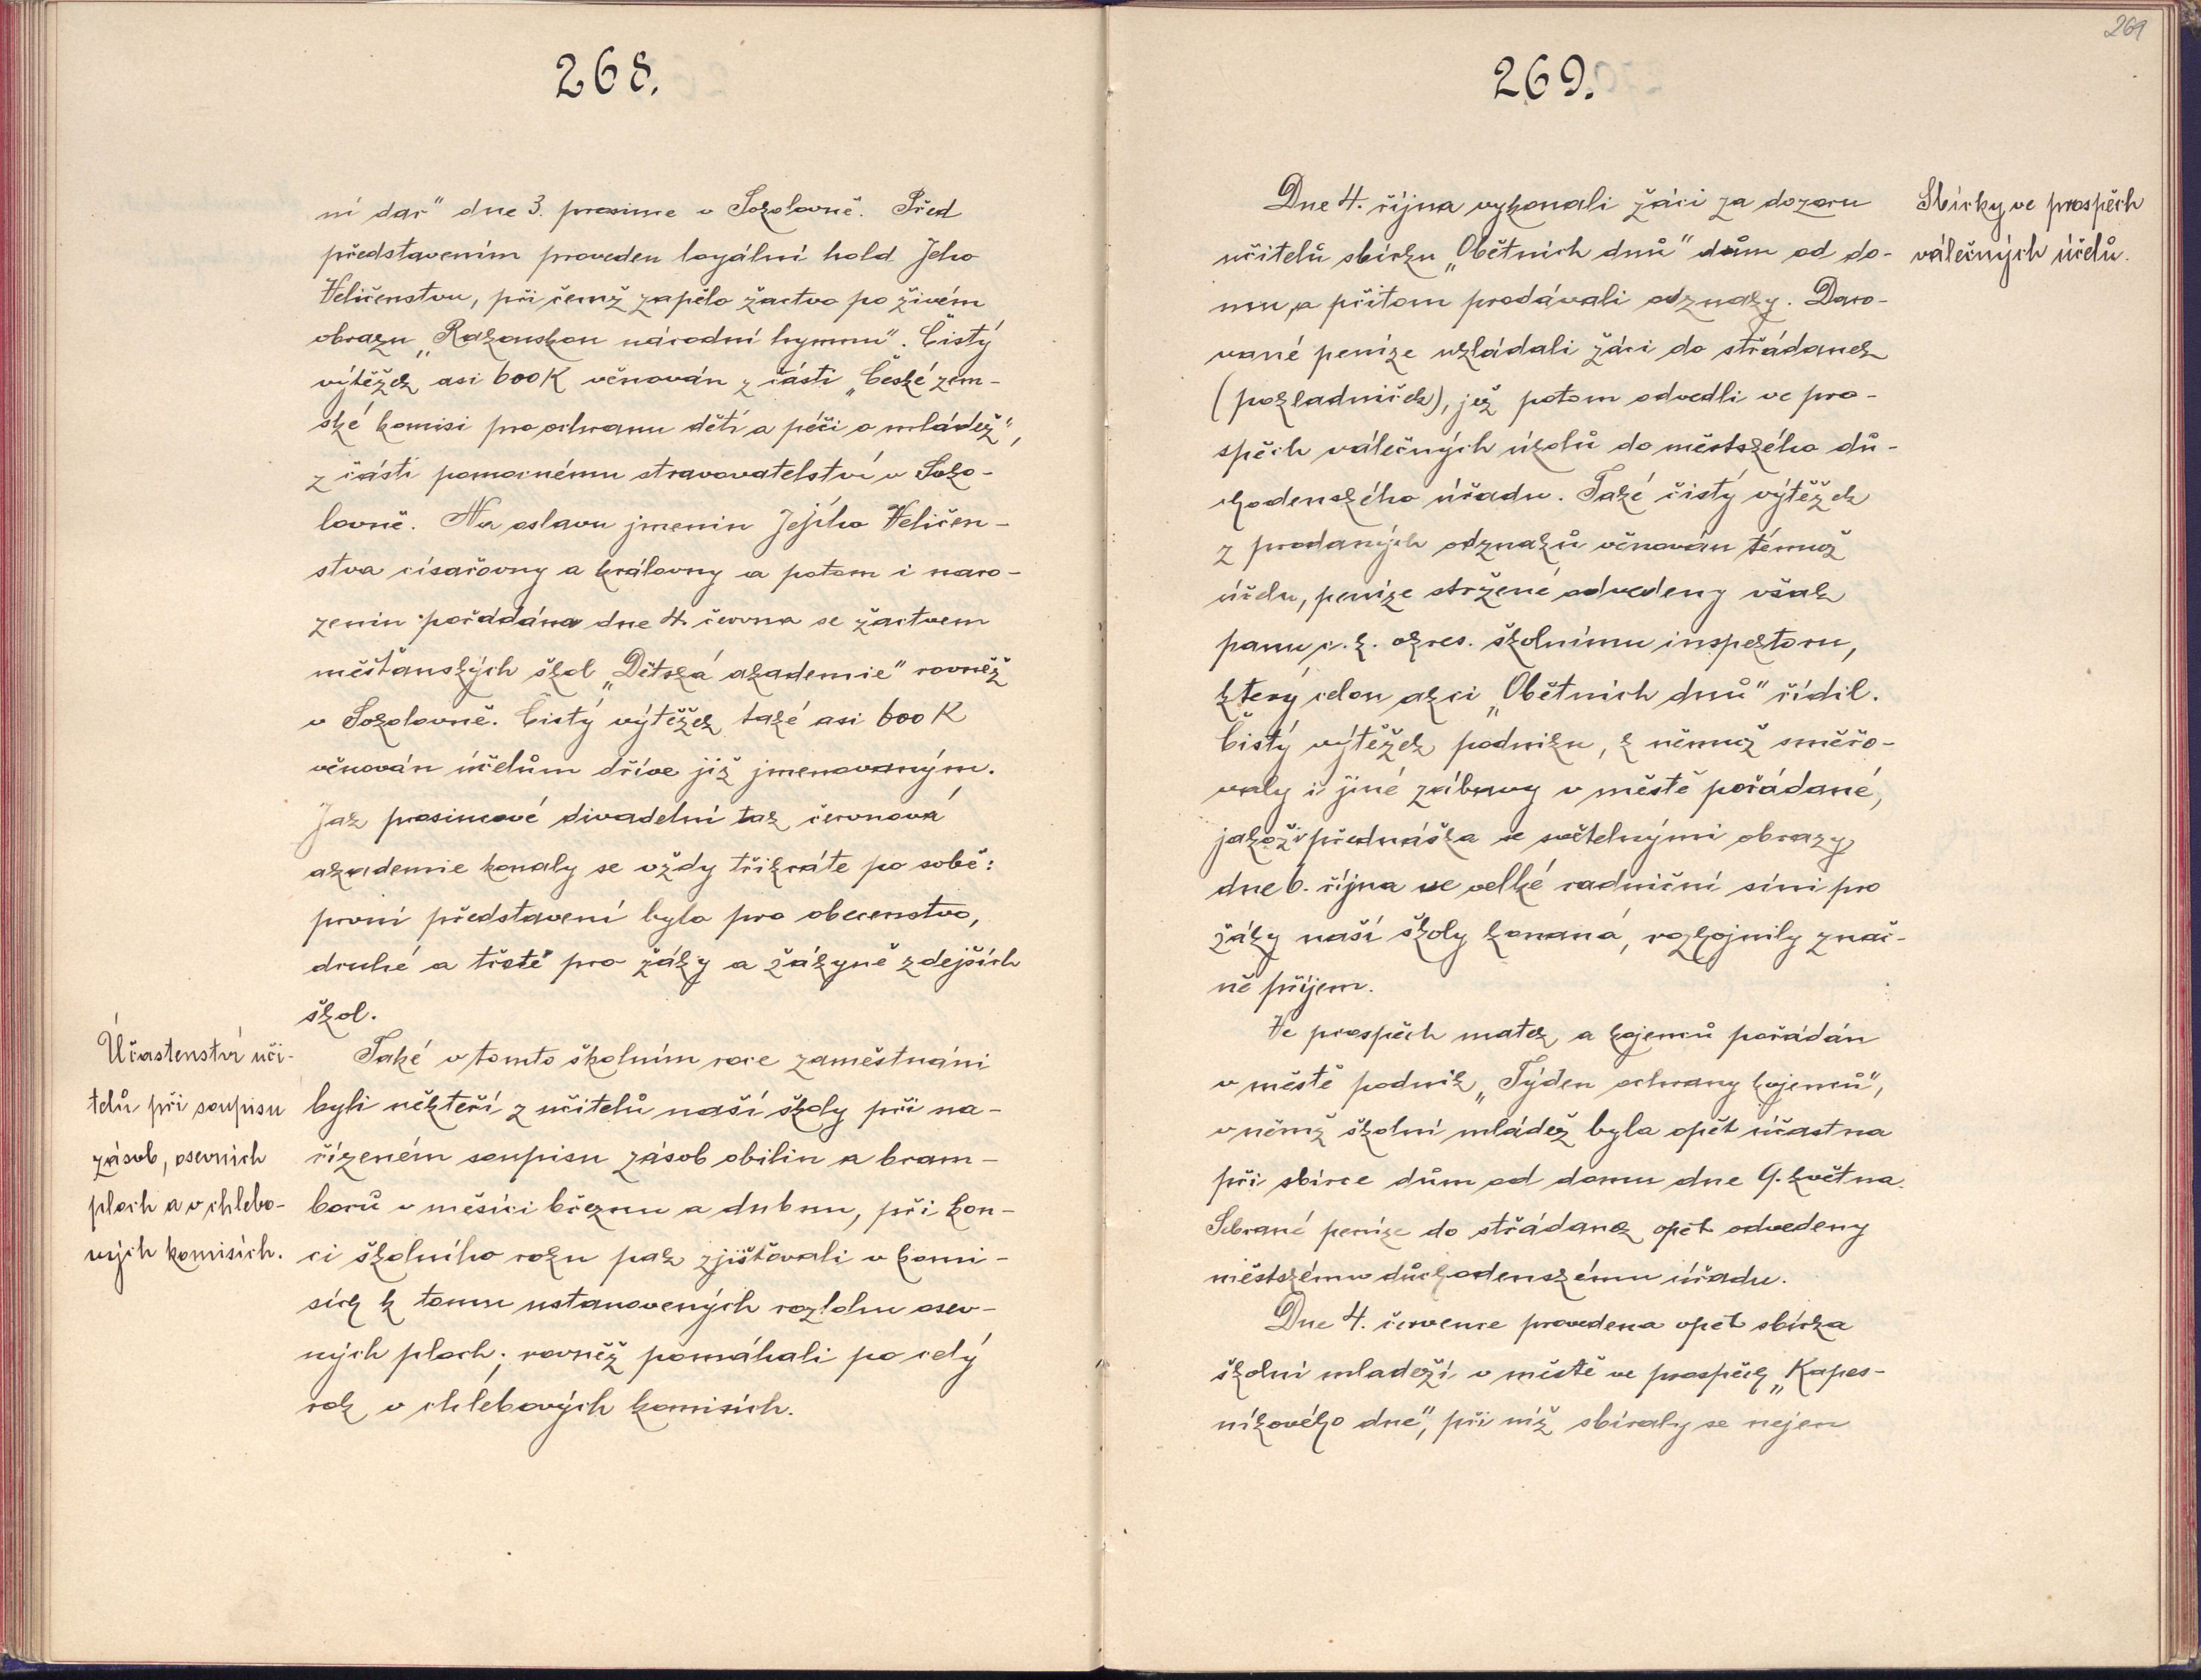 268.
ní dar" dne 3. prosince v Sokolovně. Před
představením proveden loyální hold Jeho
Veličenstvu, při čemž zapělo žactvo po živém
obrazu „Rakouskou národní hymnu". Čistý
výtěžek asi 600 K věnován z části „České zem-
ské komisi pro ochranu dětí a péči o mládež",
z části pomocnému stravovatelství v Soko-
lovně. Na oslavu jmenin Jejího Veličen-
stva císařovny a královny a potom i naro-
zenin pořádána dne 4. června se žactvem
měšťanských škol „Dětská akademie" rovněž
v Sokolovně. Čistý výtěžek také asi 600 K
věnován účelům dříve již jmenovaným.
Jak prosincové divadelní tak červnová
akademie konaly se vždy třikráte po sobě:
první představení bylo pro obecenstvo,
druhé a třetí pro žáky a žákyně zdejších
škol.
Účastenství uči-
telů při soupisu
zásob, osevních
ploch a v chlebo-
vých komisích.
Také v tomto školním roce zaměstnáni
byli někteří z učitelů naší školy při na-
řízeném soupisu zásob obilin a bram-
borů v měsíci březnu a dubnu, při kon-
ci školního roku pak zjišťovali v komi-
sích k tomu ustanovených rozlohu osev-
ných ploch; rovněž pomáhali po celý
rok v chlebových komisích.
269
269.
Sbírky ve prospěch
válečných účelů.
Dne 4. října vykonali žáci za dozoru
učitelů sbírku „Obětních dnů" dům od do-
mu a přitom prodávali odznaky. Daro-
vané peníze ukládali žáci do střádanek
(pokladniček), jež potom odvedli ve pro-
spěch válečných úkolů do městského dů-
chodenského úřadu. Také čistý výtěžek
z prodaných odznaků věnován témuž
účelu, peníze stržené odvedeny však
panu c. k. okres. školnímu inspektoru,
který celou akci „Obětních dnů" řídil.
Čistý výtěžek podniku, k němuž směřo-
valy i jiné zábavy v městě pořádané,
jakož i přednáška se světelnými obrazy
dne 6. října ve velké radniční síni pro
žáky naší školy konaná, rozhojnily znač-
ně příjem.
Ve prospěch matek a kojenců pořádán
v městě podnik „Týden ochrany kojenců",
v němž školní mládež byla opět účastna
při sbírce dům od domu dne 9. května.
Sebrané peníze do střádanek opět odvedeny
městskému důchodenskému úřadu.
Dne 4. července provedena opět sbírka
školní mládeží v městě ve prospěch „Kapes-
níkového dne", při níž sbíraly se nejen